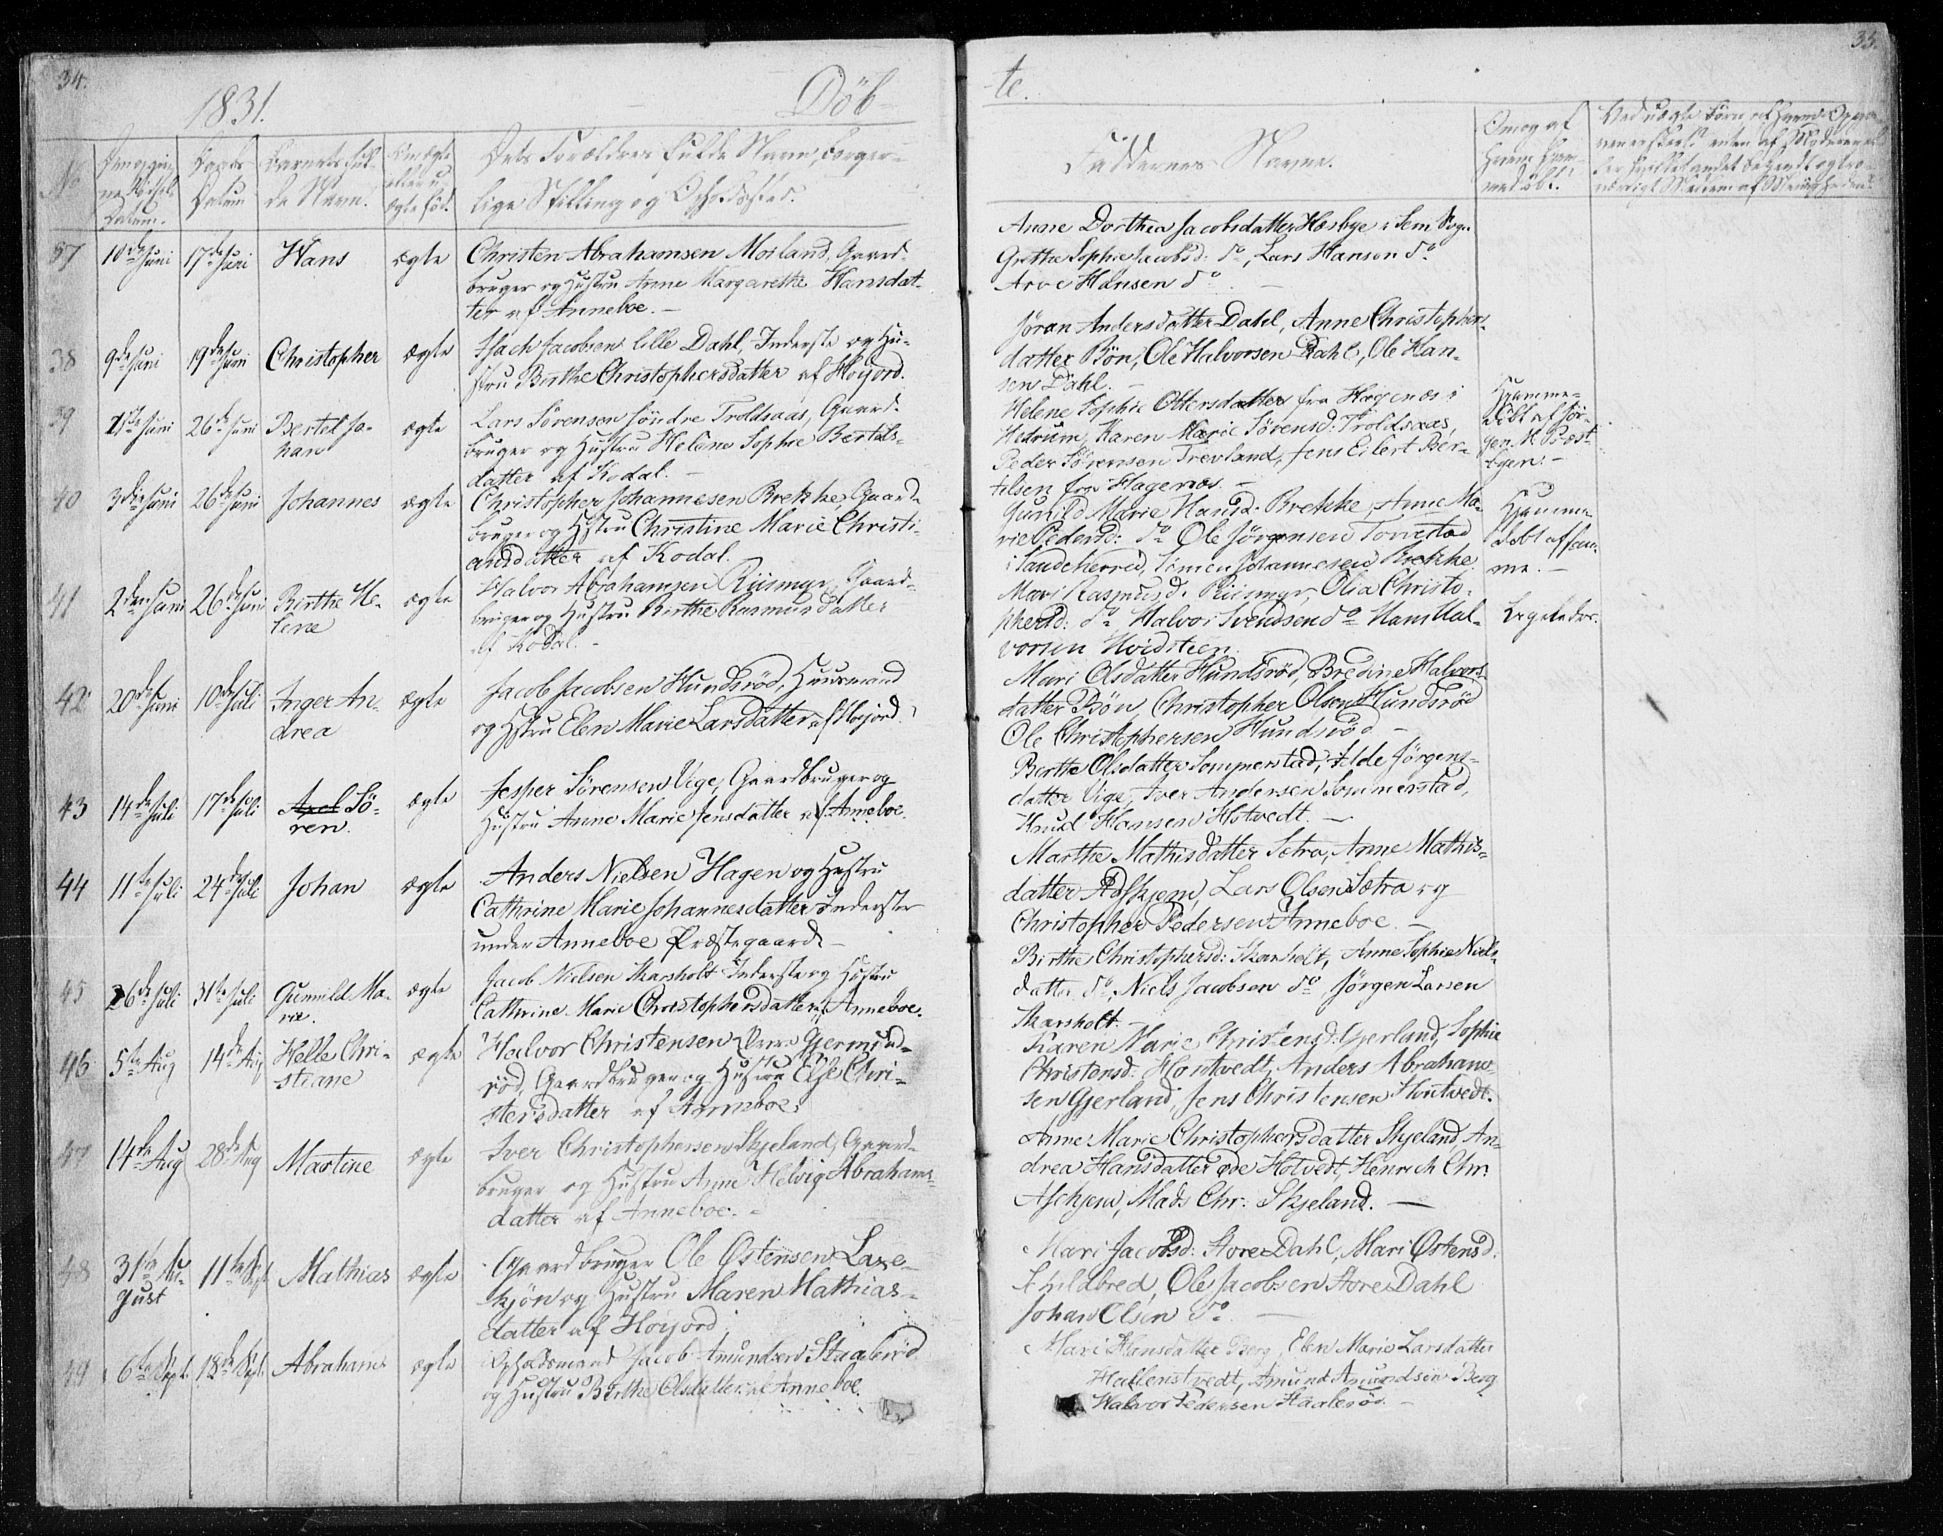 34.
1831.
Döb-
No
Barnets ful-
de Navn.
Dets Forældres fulde Navn, borger-
lige Stilling og Opholdssted.
37 10de Juni 17de Juni Hans ægte Christen Abrahamsen Moiland, Gaard-
bruger og Hustru Anne Margarethe Hansdat-
ter af Anneboe. -
38 9de Juni 19de Juni Christopher ægte Isach Jacobsen lille Dahl, Inderste og Hu-
stru Birthe Christophersdatter af Høijord.
39 Juni 26de Juni Bertel Jo- ægte Lars Sörensen Söndre Troldsaas, Gaard-
han bruger og Hustru Helene Sophie Bertels-
datter af Kodal. -
40 3die Juni 26de Juni Johannes ægte Christopher Johannesen Brekke, Gaard-
bruger og Hstru Christine Marie Christi-
ansdatter af Kodal. -
41 2den Juni 26de Juni Birthe He- ægte Halvor Abrahamsen Riismyr, Gaard-
lene bruger og Hustru Birthe Rasmusdatter
af Kodal. -
42 20de Juni 10de Juli Inger An- ægte Jacob Jacobsen Hundsröd, Huusmand
drea og Hstru Elen Marie Larsdatter af Høijord.
43 14de Juli 17de Juli Axel Sö- ægte Jesper Sörensen Vige, Gaardbruger og
ren. Hustru Anne Marie Jensdatter af Anneboe.
44 11te Juli 24de Juli Johan ægte Anders Nielsen Hagen og Hustru
Cathrine Marie Johannesdatter Inderster
under Anneboe Præstegaard -
45 26de Juli 31te Juli Gunnild Ma- ægte Jacob Nielsen Skarsholt Inderste og Hustru
rie. Cathrine Marie Christophersdatter af Anneboe.
46 5te Aug 14de Aug Helle Chri- ægte Halvor Christensen Germund-
stiane röd, Gaardbruger og Hustru Else Chri-
stensdatter af Anneboe.
47 14de Aug 28de Aug Martine ægte Iver Christophersen Skjeland, Gaard-
bruger og Hustru Anne Helvig Abrahams-
datter af Anneboe. -
48 31te Au- 11te Sept Mathias ægte Gaardbruger Ole Østensen Laxe-
gust skjön og Hustru Maren Mathias-
datter af Høijord
49 6te Sept. 18de Sept. Abraham ægte Opholdsmand Jacob Amundsen Staaleröd
og Hustru Birthe Olsdatter af Anneboe.
35.
te.
Faddernes Navne.
Om og af
hvem hjem-
medøbt.
Anne Dorthea Jacobsdatter Hæsbye i Sem Sogn
Grethe Sophie Jacobsd: do, Lars Hansen do
Arve Hansen do. -
Jöran Andersdatter Dahl, Anne Christophers-
datter Bön, Ole Halvorsen Dahl, Ole Han-
sen Dahl. -
Helene Sophie Ottersdatter fra Hagenæs i
Hedrum, Karen Marie Sörensd: Troldsaas,
Peder Sörensen Trevland, Jens Eilert Ber-
telsen fra Hagenæs. -
Hjemme-
döbt af Jör-
gen M.
Gunild Marie Hansd. Brekke, Anne Ma-
rie Pedersd: do Ole Jörgensen Tornstad
i Sandeherred, Simen Johannesen Brekke
Hjemme-
döbt af sam-
me. -
Mari Rasmusd. Riismyr Olia Christo-
phersd: do Halvor Svendsen do Hans Hal-
vorsen Hvidsteen.
Ligeledes.
Mari Olsdatter Hundsröd, Bredine Halvors-
datter Bön, Christopher Olsen Hundsröd
Ole Christophersen Hundsröd -
Berthe Olsdatter Sommerstad, Helde Jörgens-
datter Vige, Iver Andersen Sommerstad,
Knud Hansen Hotvedt. -
Marthe Mathisdatter Sætra, Anne Mathis-
datter Adskjem, Lars Olsen Sætra og
Christopher Pedersen Anneboe. -
Birthe Christophersd: Skarsholt, Anne Sophie Niels-
datter do, Niels Jacobsen do Jörgen Larsen
Skarsholt. -
Karen Marie Christensd: Gjerland, Sophie
Christensd. Hontvedt, Anders Abraham-
sen Gjerland, Jens Christensen Hontvedt.
Anne Marie Christophersdatter Skjeland, An-
drea Hansdatter øde Hotvedt, Henrich Chr:
Askjem, Mads Chr: Skjeland. -
Mari Jacobsd: Store Dahl, Mari Østensd:
Skildbred, Ole Jacobsen Store Dahl
Johan Olsen do. -
Mari Hansdatter Berg, Elen Marie Larsdatter
Hallenstvedt, Amund Amundsen Berg
Halvor Pedersen Staaleröd. -